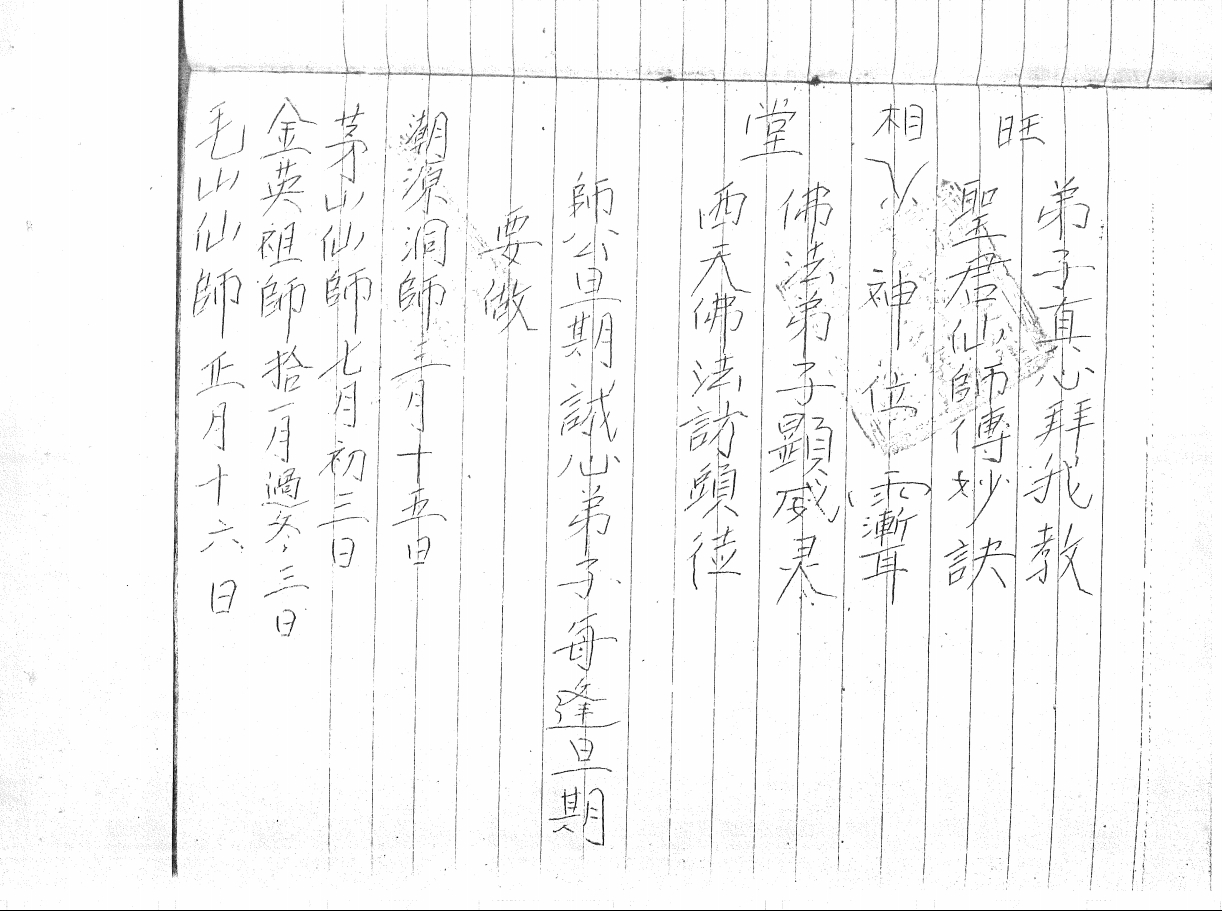 旺 相 堂
弟子真心拜我教
聖君仙師傳妙訣
神位
佛法弟子顯威灵
西天佛法訪頭徒
師公旦期誠心弟子每逢旦期
要做
潮源洞師三月十五日
茅山仙師七月初三日
金英祖師拾一月過冬三日
毛山仙師正月十六日